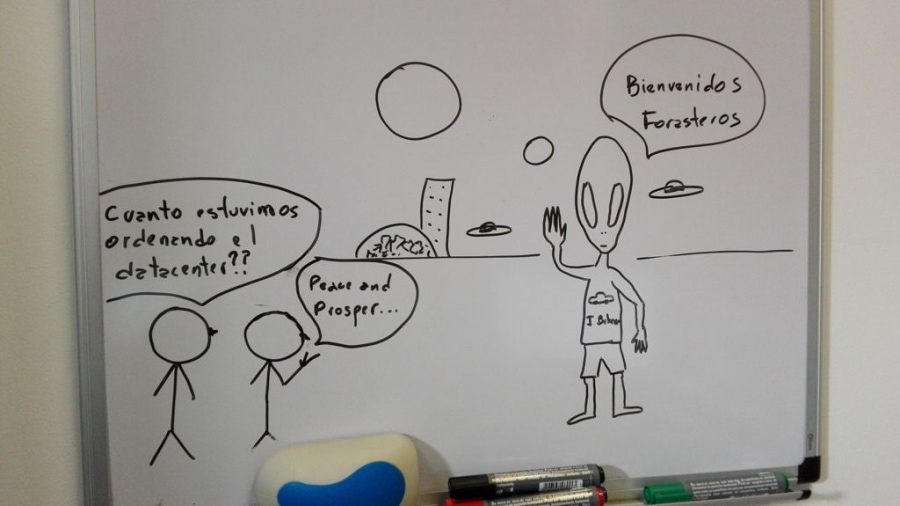 Bienvenidos
Forasteros
Cuanto estuvimos
ordenando el
datacenter??
Peace and
Prosper...